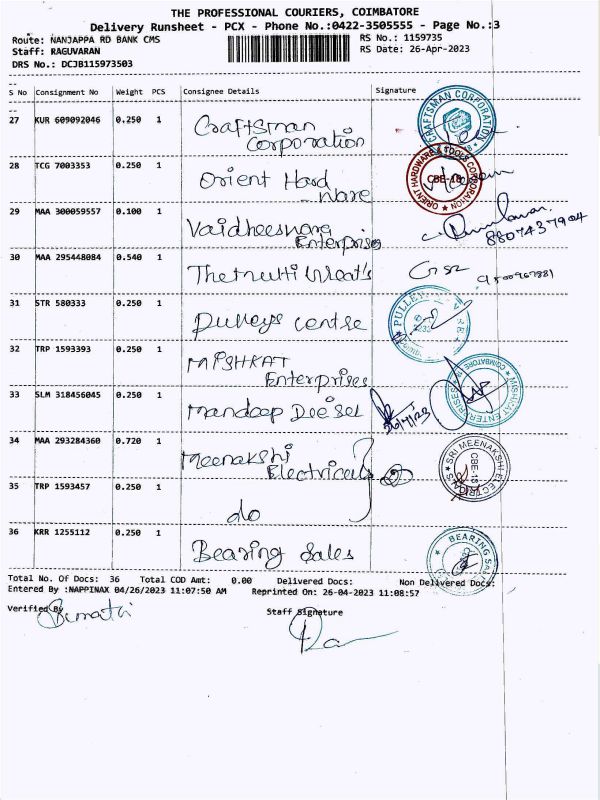 THE PROFESSIONAL COURIERS, COIMBATORE
Delivery Runsheet - PCX - Phone No.:0422-3505555 - Page No.:3
Route: NANJAPPA RD BANK CMS RS No.: 1159735
Staff: RAGUVARAN RS Date: 26-Apr-2023
DRS No.: DCJB115973503
S No Consignment No Weight PCS Consignee Details Signature
27 KUR 609092046 0.250 1 Craftsman
Corporation
CRAFTSMAN CORPORATION
28 TCG 7003353 0.250 1 Orient Hard
ware
ORIENT HARDWARE & TOOLS CORPORATION
CBE-18
29 MAA 300059557 0.100 1 Vaidheeswara
Enterprises
8807437904
30 MAA 295448084 0.540 1
9500967881
31 STR 580333 0.250 1 Pulleys centre
32 TRP 1593393 0.250 1 MISHKAT
Enterprises
MISHKAT ENTERPRISES
COIMBATORE
33 SLM 318456045 0.250 1 Mandeep Diesel
26/4/23
34 MAA 293284360 0.720 1 Meenakshi
Electricals
SRI MEENAKSHI ELECTRICALS
CBE-18
35 TRP 1593457 0.250 1 do
36 KRR 1255112 0.250 1 Bearing Sales
BEARING SALES
Total No. Of Docs: 36 Total COD Amt: 0.00 Delivered Docs: Non Delivered Docs:
Entered By :NAPPINAX 04/26/2023 11:07:50 AM Reprinted On: 26-04-2023 11:08:57
Verified By Staff Signature